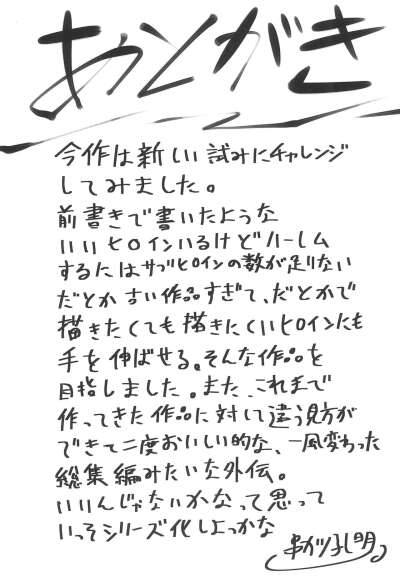 あとがき
今作は新しい試みにチャレンジ
してみました。
前書きで書いたような
いいヒロインいるけどハーレム
するにはサブヒロインの数が足りない
だとか古い作品すぎて、だとかで
描きたくても描きたくいヒロインにも
手を伸ばせる。そんな作品を
目指しました。また、これまで
作ってきた作品に対して違う見方が
できて二度おいしい的な、一風変わった
総集編みたいな外伝。
いいんじゃないかなって思って
いっそシリーズ化しよっかな
串カツ孔明